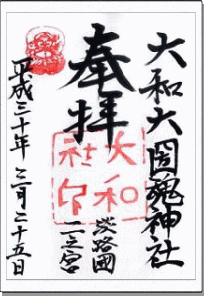 大和大國魂神社
淡路國
二之宮
奉拝
大和
社印
平成三十年三月二十五日